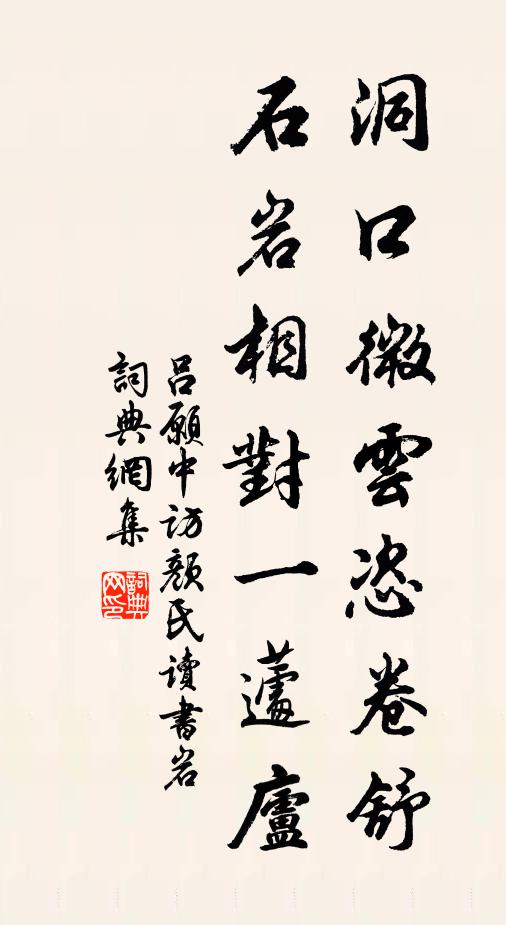 洞口微雲恣卷舒
石岩相對一蘧廬
吕願中訪顏氏讀書岩
詞典網集
詞典
网印